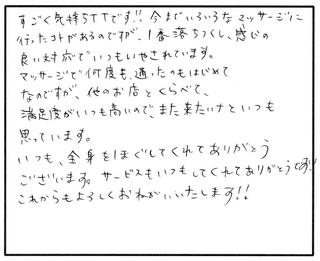 すごく気持ちTTです!! 今までいろいろなマッサージに
行ったコトがあるのですが、1番落ちつくし、感じの
良い対応でいつもいやされています。
マッサージで何度も通ったのもはじめて
なのですが、他のお店とくらべて、
満足度がいつも高いので、また来たいナといつも
思っています。
いつも、全身をほぐしてくれてありがとう
ございます。サービスもいつもしてくれてありがとうです!!
これからもよろしくおねがいいたします!!